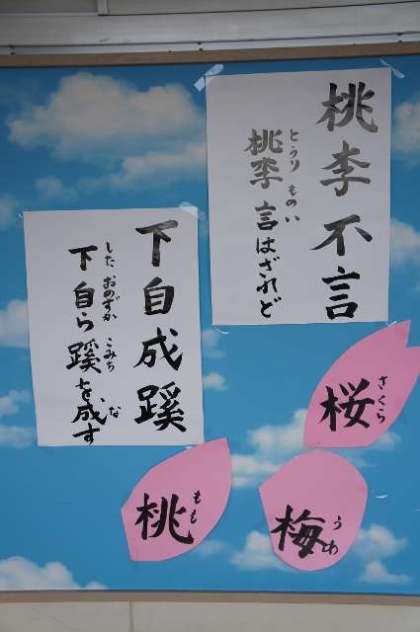 桃李不言
とうり ものい
桃李 言はざれど
下自成蹊
した おのずか こみち な
下 自ら 蹊を成す
桜
さくら
梅
うめ
桃
もも